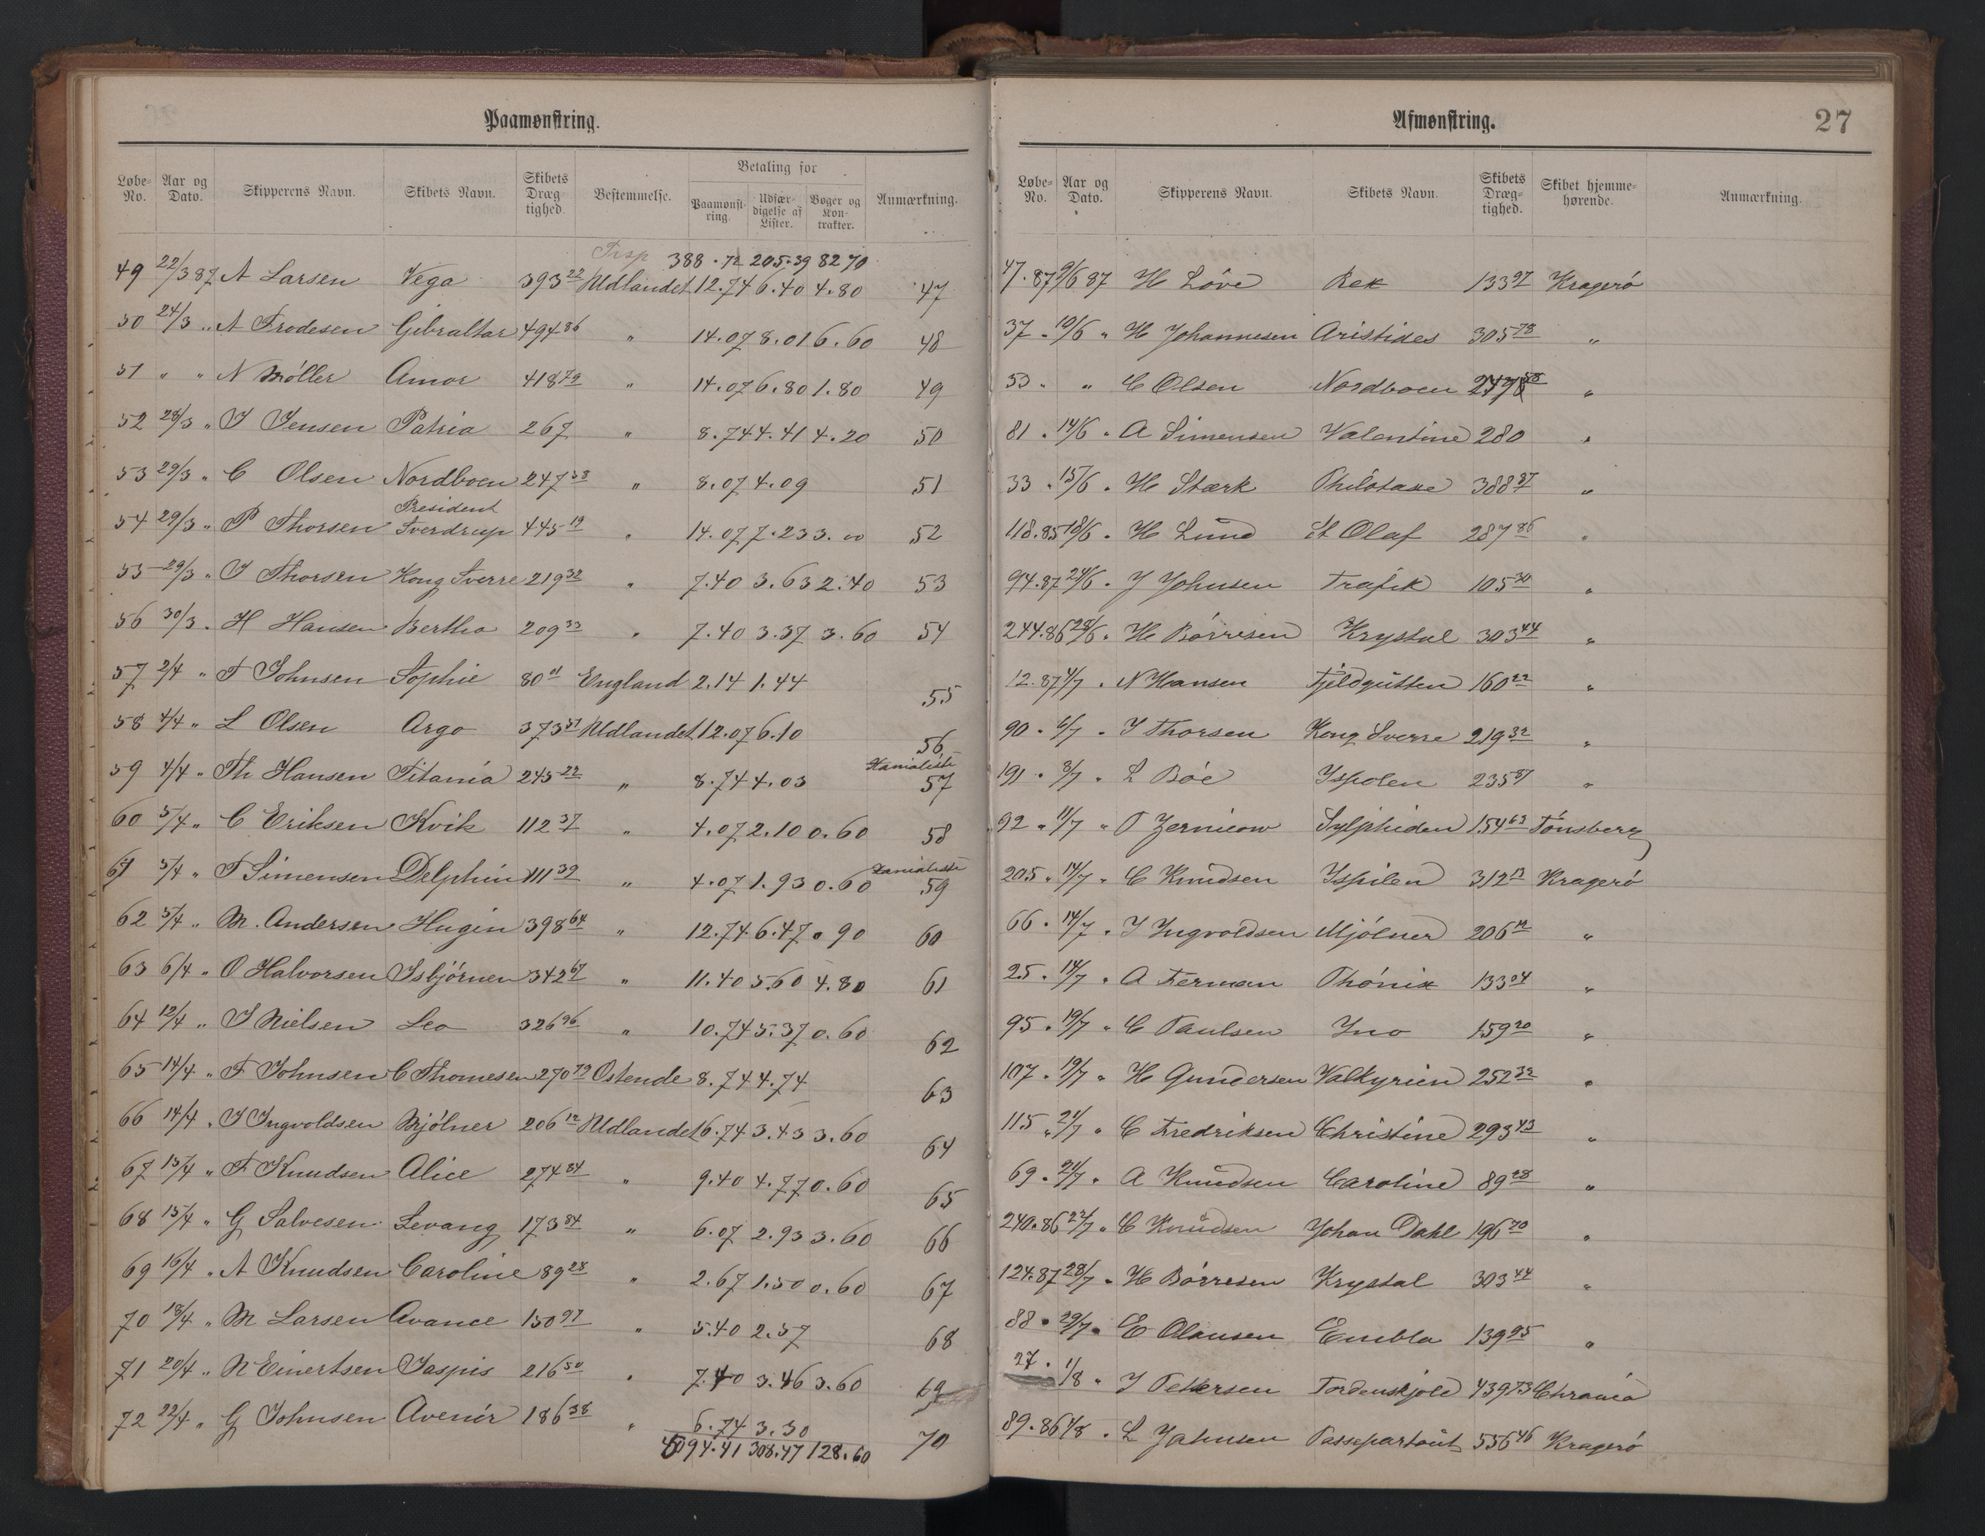 Paamønstring.
Løbe-No. Aar og Dato. Skipperens Navn. Skibets Navn. Skibets Dræg-tighed. Bestemmelse. Betaling for Paamønst-ring. Udfær-digelse af Lister. Bøger og Kon-trakter. Anmærkning.
Trsp 388.72 205.39 82 70
49 22/3 87 A Larsen Vega 393 22 Udlandet 12.74 6.40 4.80 47
50 24/3 „ A Frodesen Gibraltar 494 86 „ 14.07 8.01 6.60 48
51 „ „ N Møller Amor 418 79 „ 14.07 6.80 1.80 49
52 28/3 „ I Jensen Patria 267 „ 8.74 4.41 4.20 50
53 29/3 „ C Olsen Nordboen 247 58 „ 8.07 4.09 51
54 29/3 „ P Thorsen President Sverdrup 445 19 „ 14.07 7.23 3.00 52
55 29/3 „ I Thorsen Kong Sverre 219 32 „ 7.40 3.63 2.40 53
56 30/3 „ H Hansen Bertha 209 33 „ 7.40 3.37 3.60 54
57 2/4 „ F Johnsen Sophie 80 01 England 2.14 1.44 55
58 4/4 „ L Olsen Argo 373 51 Udlandet 12.07 6.10 56
59 4/4 „ Th Hansen Titania 245 22 „ 8.74 4.03 57
60 5/4 „ C Eriksen Kvik 112 37 „ 4.07 2.10 0.60 58
61 5/4 „ F Simensen Delphin 111 39 „ 4.07 1.93 0.60 59
62 5/4 „ M. Andersen Hugin 398 64 „ 12.74 6.47 0 90 60
63 6/4 „ O Halvorsen Isbjørnen 342 67 „ 11.40 5.60 4.80 61
64 12/4 „ I Nielsen Leo 326 96 „ 10.74 5.37 0.60 62
65 14/4 „ F Johnsen C Thomesen 270 79 Ostende 8.74 4.74 63
66 14/4 „ I Ingvoldsen Mjølner 206 12 Udlandet 6.74 3.43 3.60 64
67 15/4 „ F Knudsen Alice 274 84 „ 9.40 4.77 0.60 65
68 15/4 „ G Salvesen Levang 173 84 „ 6.07 2.93 3.60 66
69 16/4 „ A Knudsen Caroline 89 28 „ 2.67 1.50 0.60 67
70 18/4 „ M Larsen Avance 150 97 „ 5.40 2.57 68
71 20/4 „ N Einertsen Jaspis 216 50 „ 7.40 3.46 3.60 69
72 22/4 „ G Johnsen Avenir 186 38 „ 6.74 3.30 70
94.41 308.47 128.60
Afmønstring. 27
Løbe-No. Aar og Dato. Skipperens Navn. Skibets Navn. Skibets Dræg-tighed. Skibet hjemme-hørende. Anmærkning.
47.87 9/6 87 H Løve Rex 133 97 Kragerø
37 „ 10/6 „ H Johannesen Aristides 305 78 „
53 „ „ C Olsen Nordboen 247 58 „
81 „ 14/6 „ A Simensen Valentine 280 „
33 „ 15/6 „ H Stærk Philotaxe 388 87 „
118.85 18/6 „ H Lund St Olaf 287 86 „
94.87 24/6 „ J Johnsen Trafik 105 30 „
244.86 28/6 „ H Børresen Krystal 303 44 „
12.87 4/7 „ N Hansen Fjeldgutten 160 22 „
90 „ 6/7 „ I Thorsen Kong Sverre 219 32 „
191 „ 8/7 „ L Bøe Ispolen 235 87 „
92 „ 11/7 „ T Zernicow Sylphiden 154 63 Tønsberg
205 „ 14/7 „ C Knudsen Ispilen 312 13 Kragerø
66 „ 14/7 „ I Ingvoldsen Mjølner 206 12 „
25 „ 14/7 „ A Ferman Phønix 133 24 „
95 „ 19/7 „ C Paulsen Ino 159 20 „
107 „ 19/7 „ H Gundersen Valkyrien 252 32 „
115 „ 21/7 „ C Fredriksen Christine 293 43 „
69 „ 21/7 „ A Knudsen Caroline 89 28 „
240.86 22/7 „ C Knudsen Johan Dahl 196 70 „
124.87 28/7 „ H Børresen Krystal 303 44 „
88 „ 29/7 „ E Olausen Embla 139 95 „
27. 1/8 „ I Pettersen Tordenskjold 439 73 Chrania
89.86 1/8 „ L Johnsen Passepartout 556 46 Kragerø